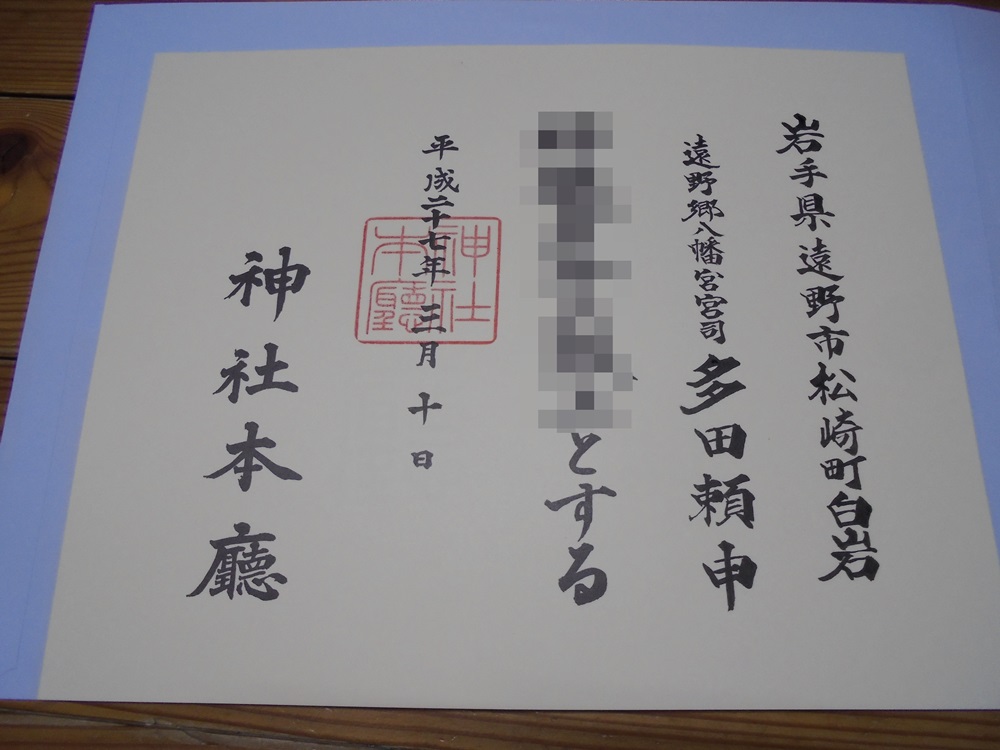 岩手県遠野市松崎町白岩
遠野郷八幡宮宮司 多田頼申
とする
平成二十七年三月十日
神社本廳
神社本廳